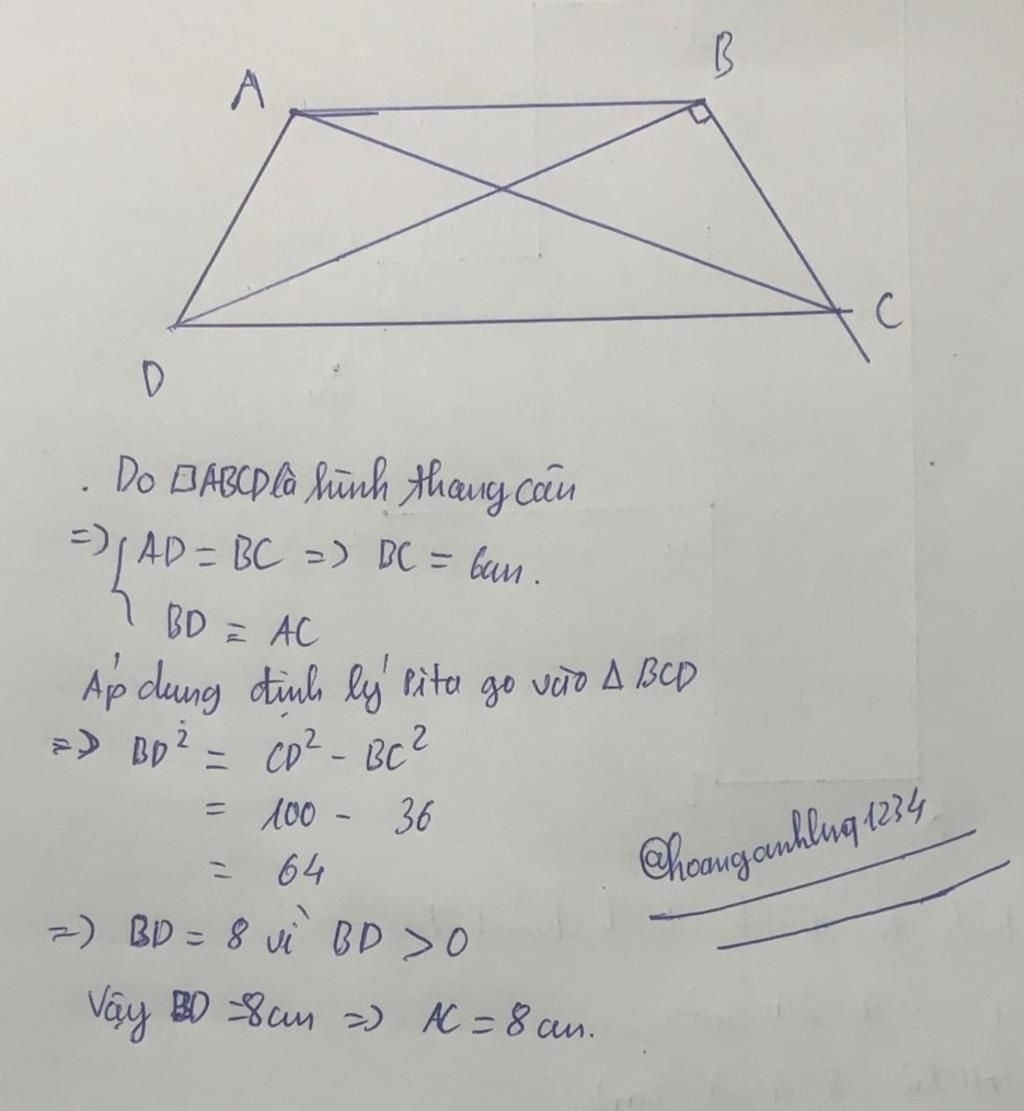 A
B
C
D
. Do □ABCD là hình thang cân
=> { AD = BC => BC = 6cm.
BD = AC
Áp dụng định lý Pita go vào Δ BCD
=> BD² = CD² - BC²
= 100 - 36
= 64
=> BD = 8 vì BD > 0
Vậy BD = 8cm => AC = 8cm.
@hoanganhlung1234